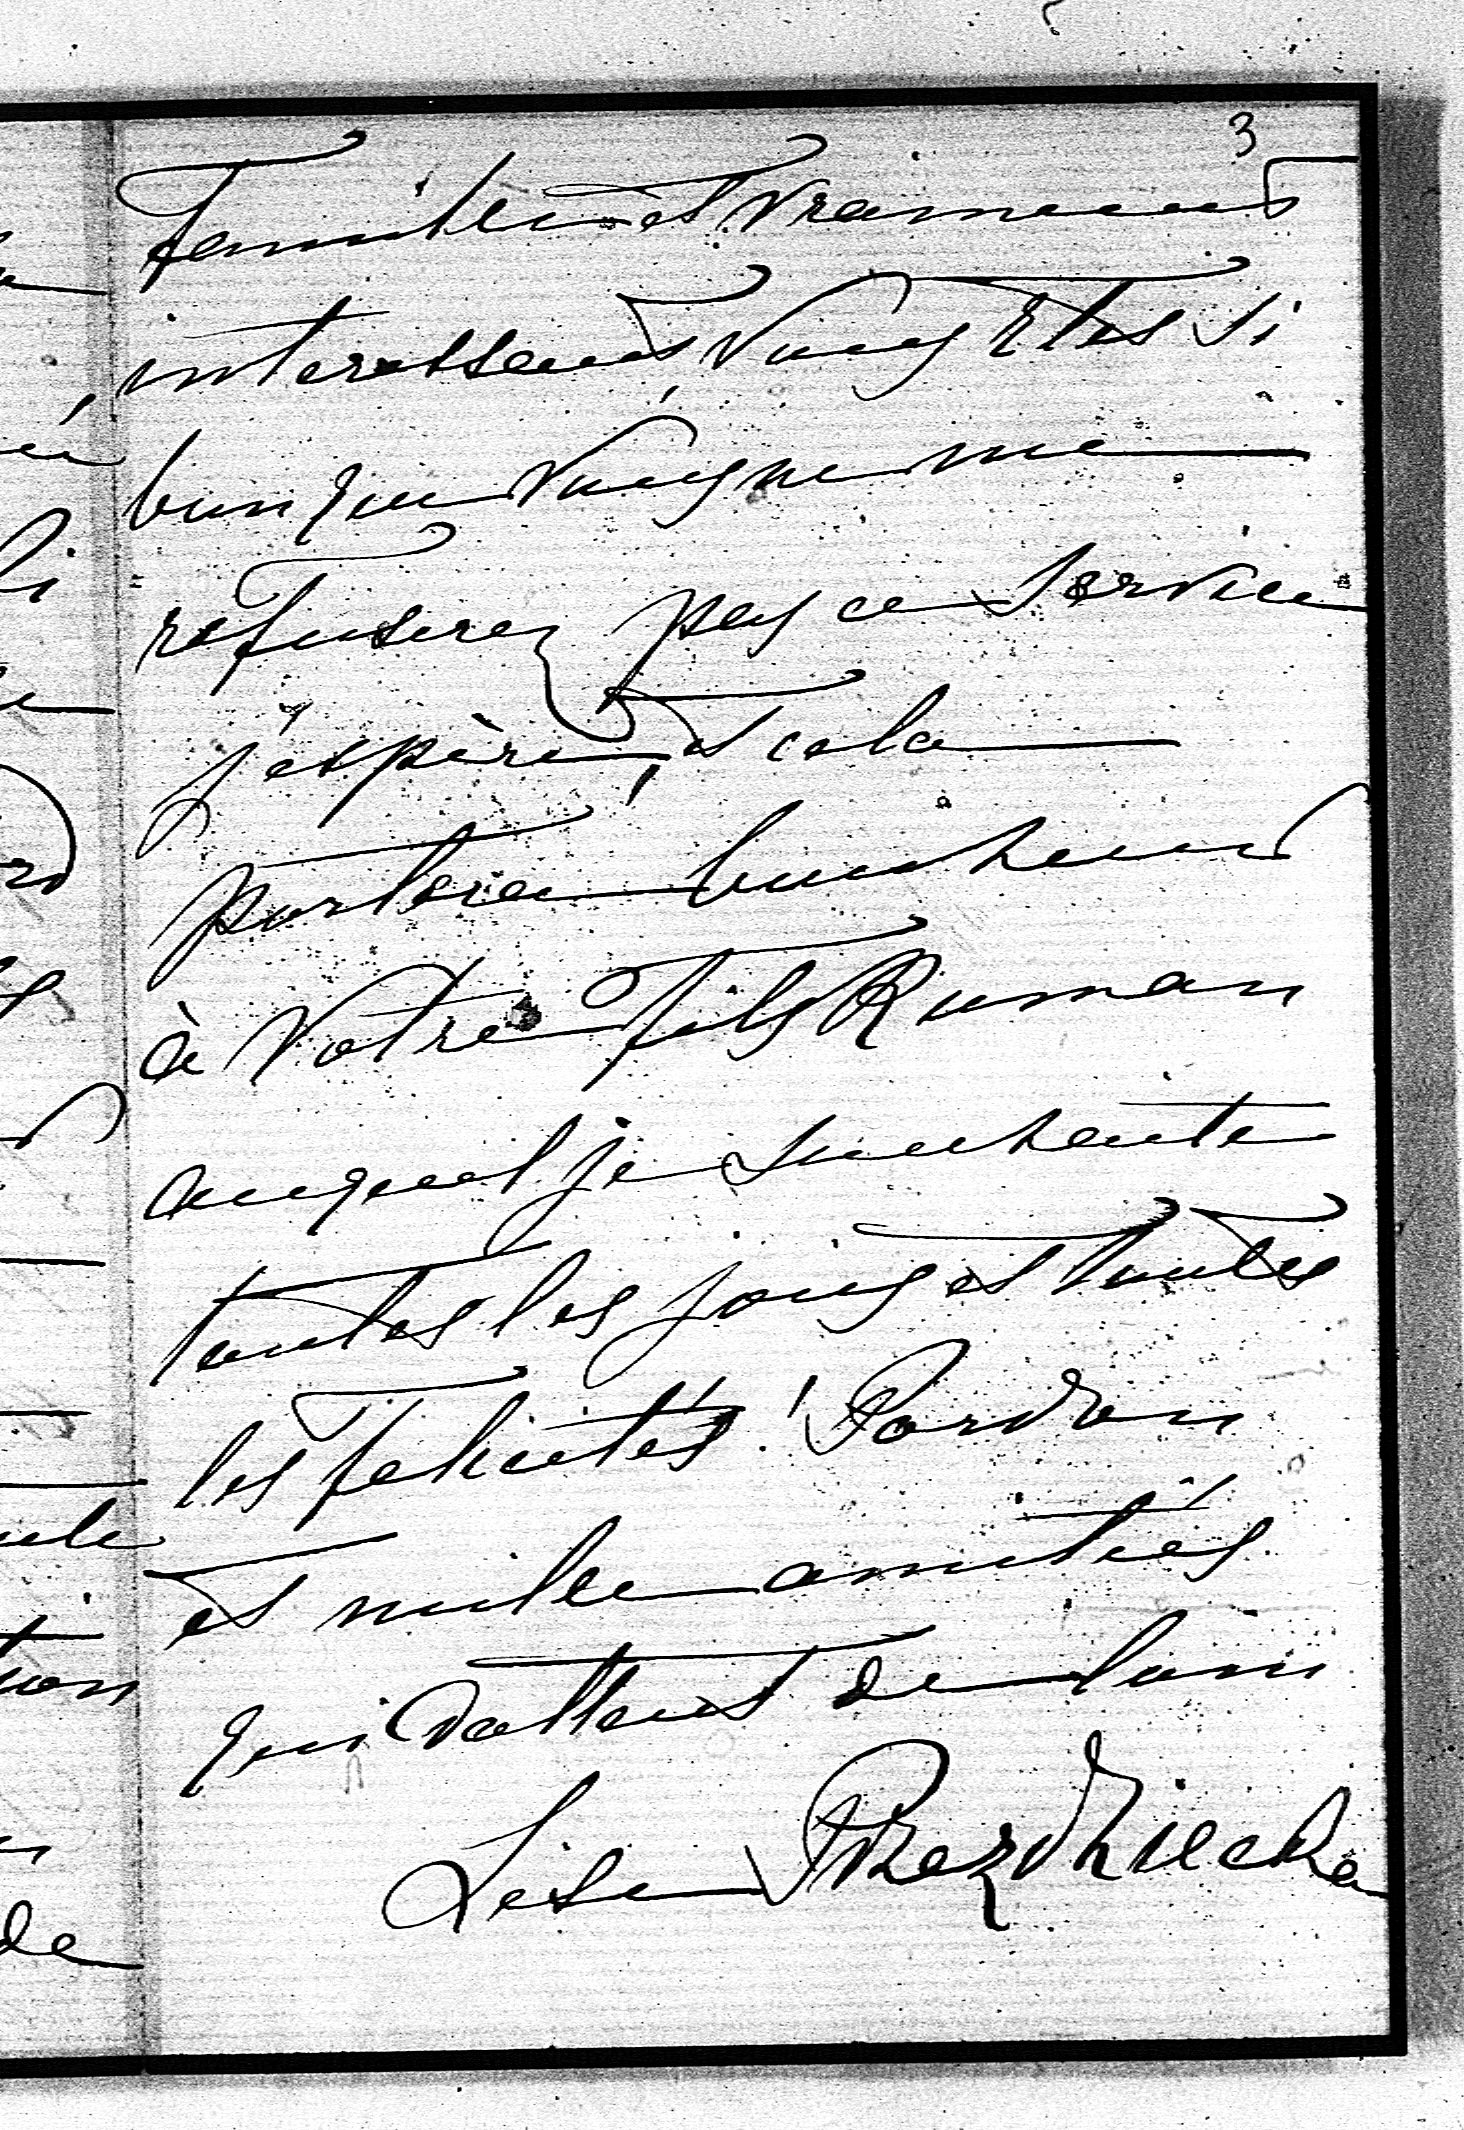 3
famille est vraiment
interessant, Vous êtes si
bon que vous ne me
refuserez pas ce service
j'espère, et cela
portera bonheur
à Votre fils Roman
auquel je souhaite
toutes les joies et toutes
les félicités! Pardon
et mille amitiés
qui datent de loin
Lise Przezdziecka